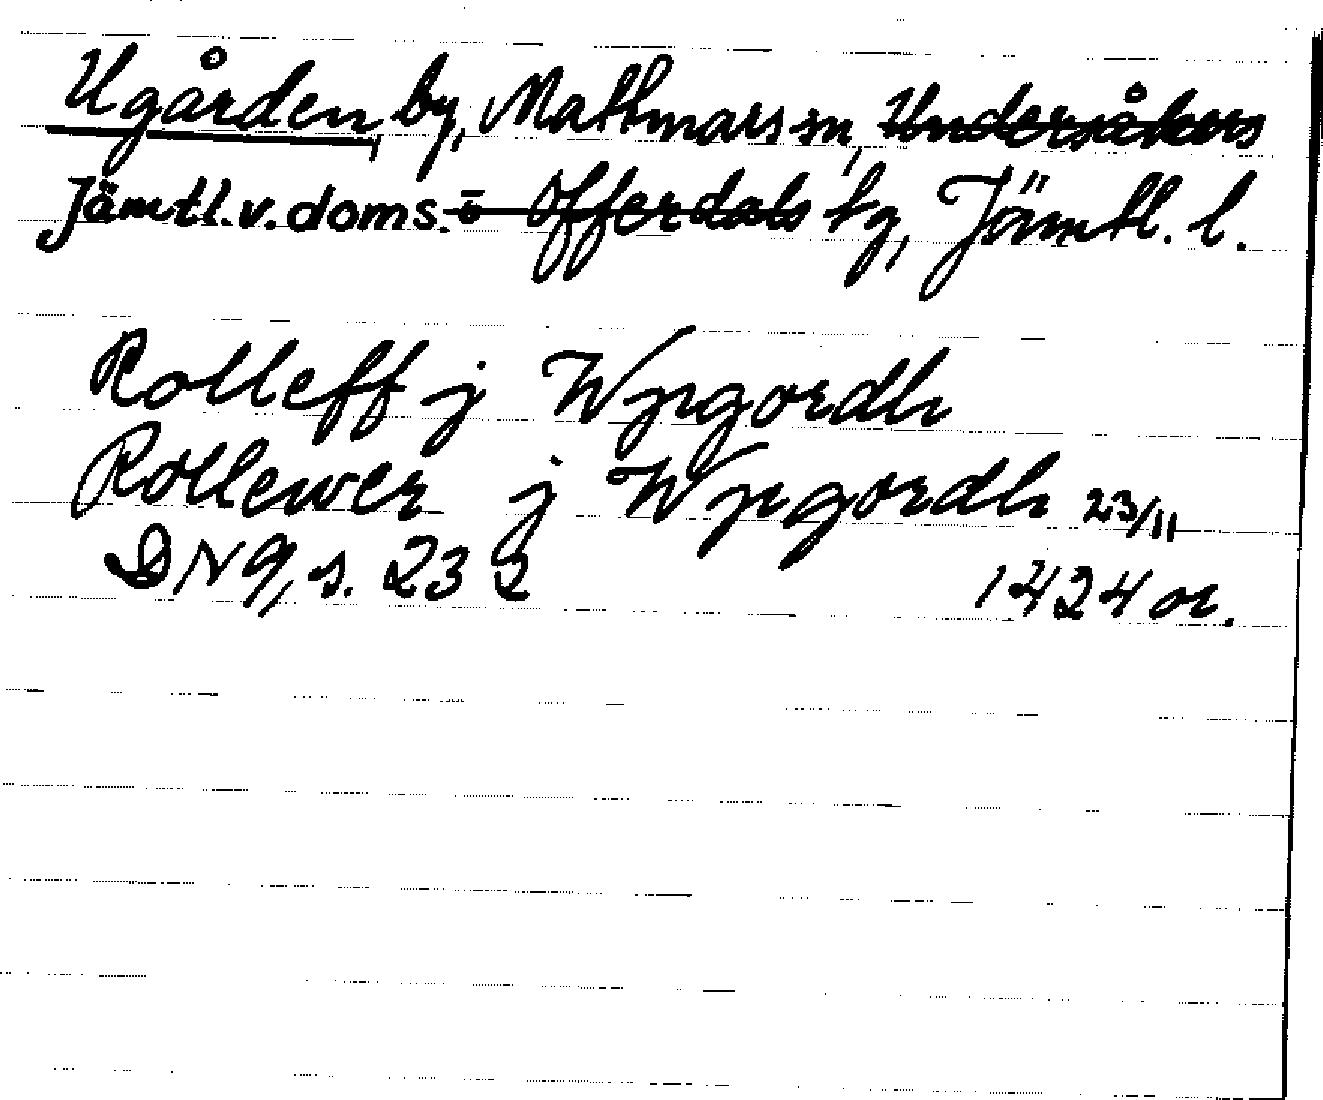 Ugården, by, Mattmars sn, Undersåkers
Jämtl.v.doms. o Offerdals tg, Jämtl. l.
Rolleff j Wgugordh
Rollewer j Wgugordh 23/11
DN 9, s. 232 1424 or.